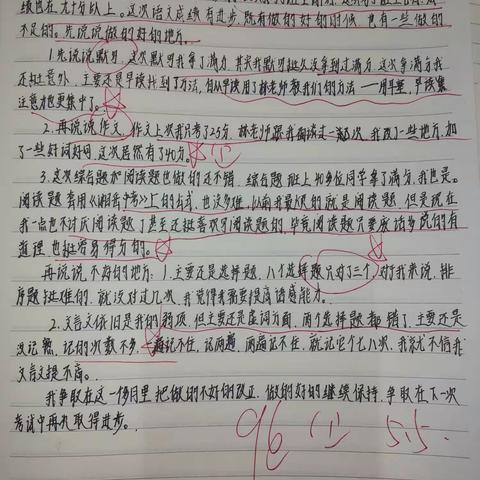 绩也在九十分以上。这次语文成绩有进步,既有做的好的时候,也有一些做的
不足的。先说说做的好的地方。
1.先说说默写,这次默写我拿了满分,其实我默写挺久没拿到过满分,这次拿满分我
还挺意外,主要还是早读找到了方法,自从早读用了林老师教我们的方法
注意力也更集中了。
2.再说说作文,作文上次我只考了25分,林老师跟我面谈过一次,我改了一些地方,加
了一些好词好句,这次居然有了40分。①
3.这次综合题和阅读题也做的还不错,综合题班上40多位同学拿了满分,我也是。
阅读题 上的公式,也没多难,以前我最恨的就是阅读题,但是现在
我一点也不讨厌阅读题了甚至还挺喜欢写阅读题的,毕竟阅读题只要应该多说的有
道理也挺容易得分的。
再说说不好的地方:1.主要还是选择题,八个选择题只对了三个,对我来说,排
序题挺难的,就没对过几次,我觉得我需要提高语感能力。
2.文言文依旧是我的弱项,但主要还是虚词方面,两个选择题都错了,主要还是
没记熟,记的次数不多,一遍记不住,记两遍,两遍记不住,就记它个七八次,我就不信我
文言文提不高。
我争取在这一个月里把做的不好的改正,做的好的继续保持,争取在下一次
考试中再次取得进步。
96 ① 5.15.